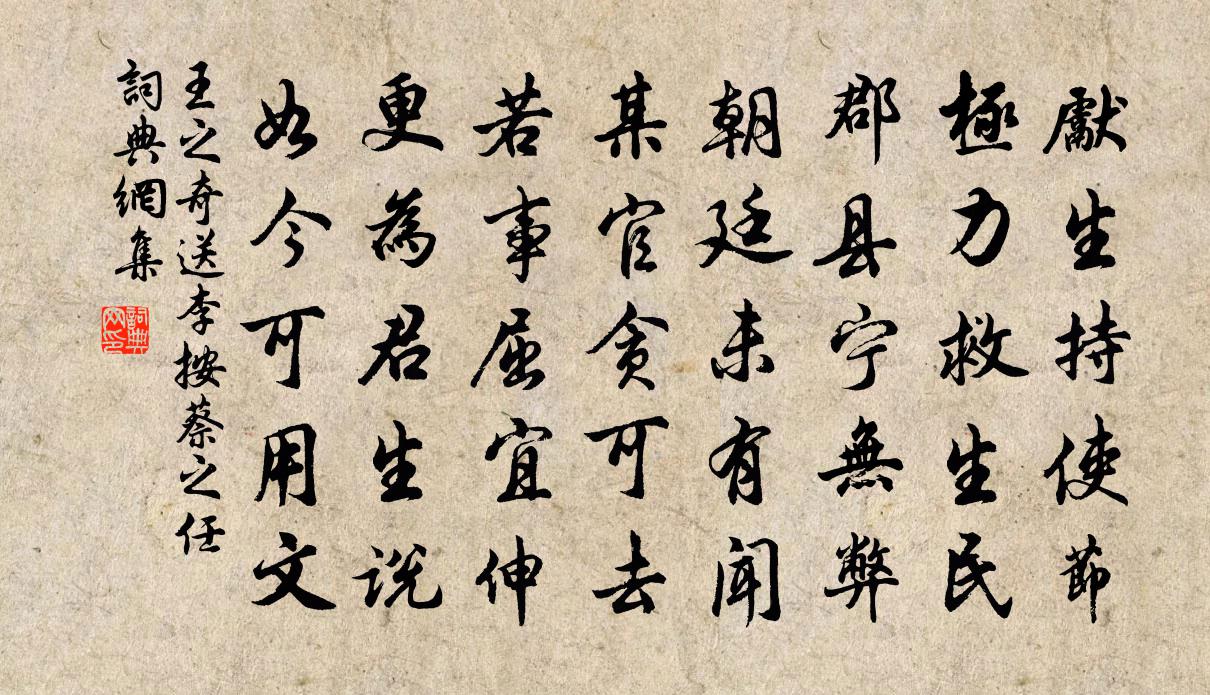 獻生持使節
極力救生民
郡县宁無弊
朝廷未有闻
某官貪可去
若事屈宜伸
更為君生説
如今可用文
王之奇送李按蔡之任
詞典網集
詞典网印